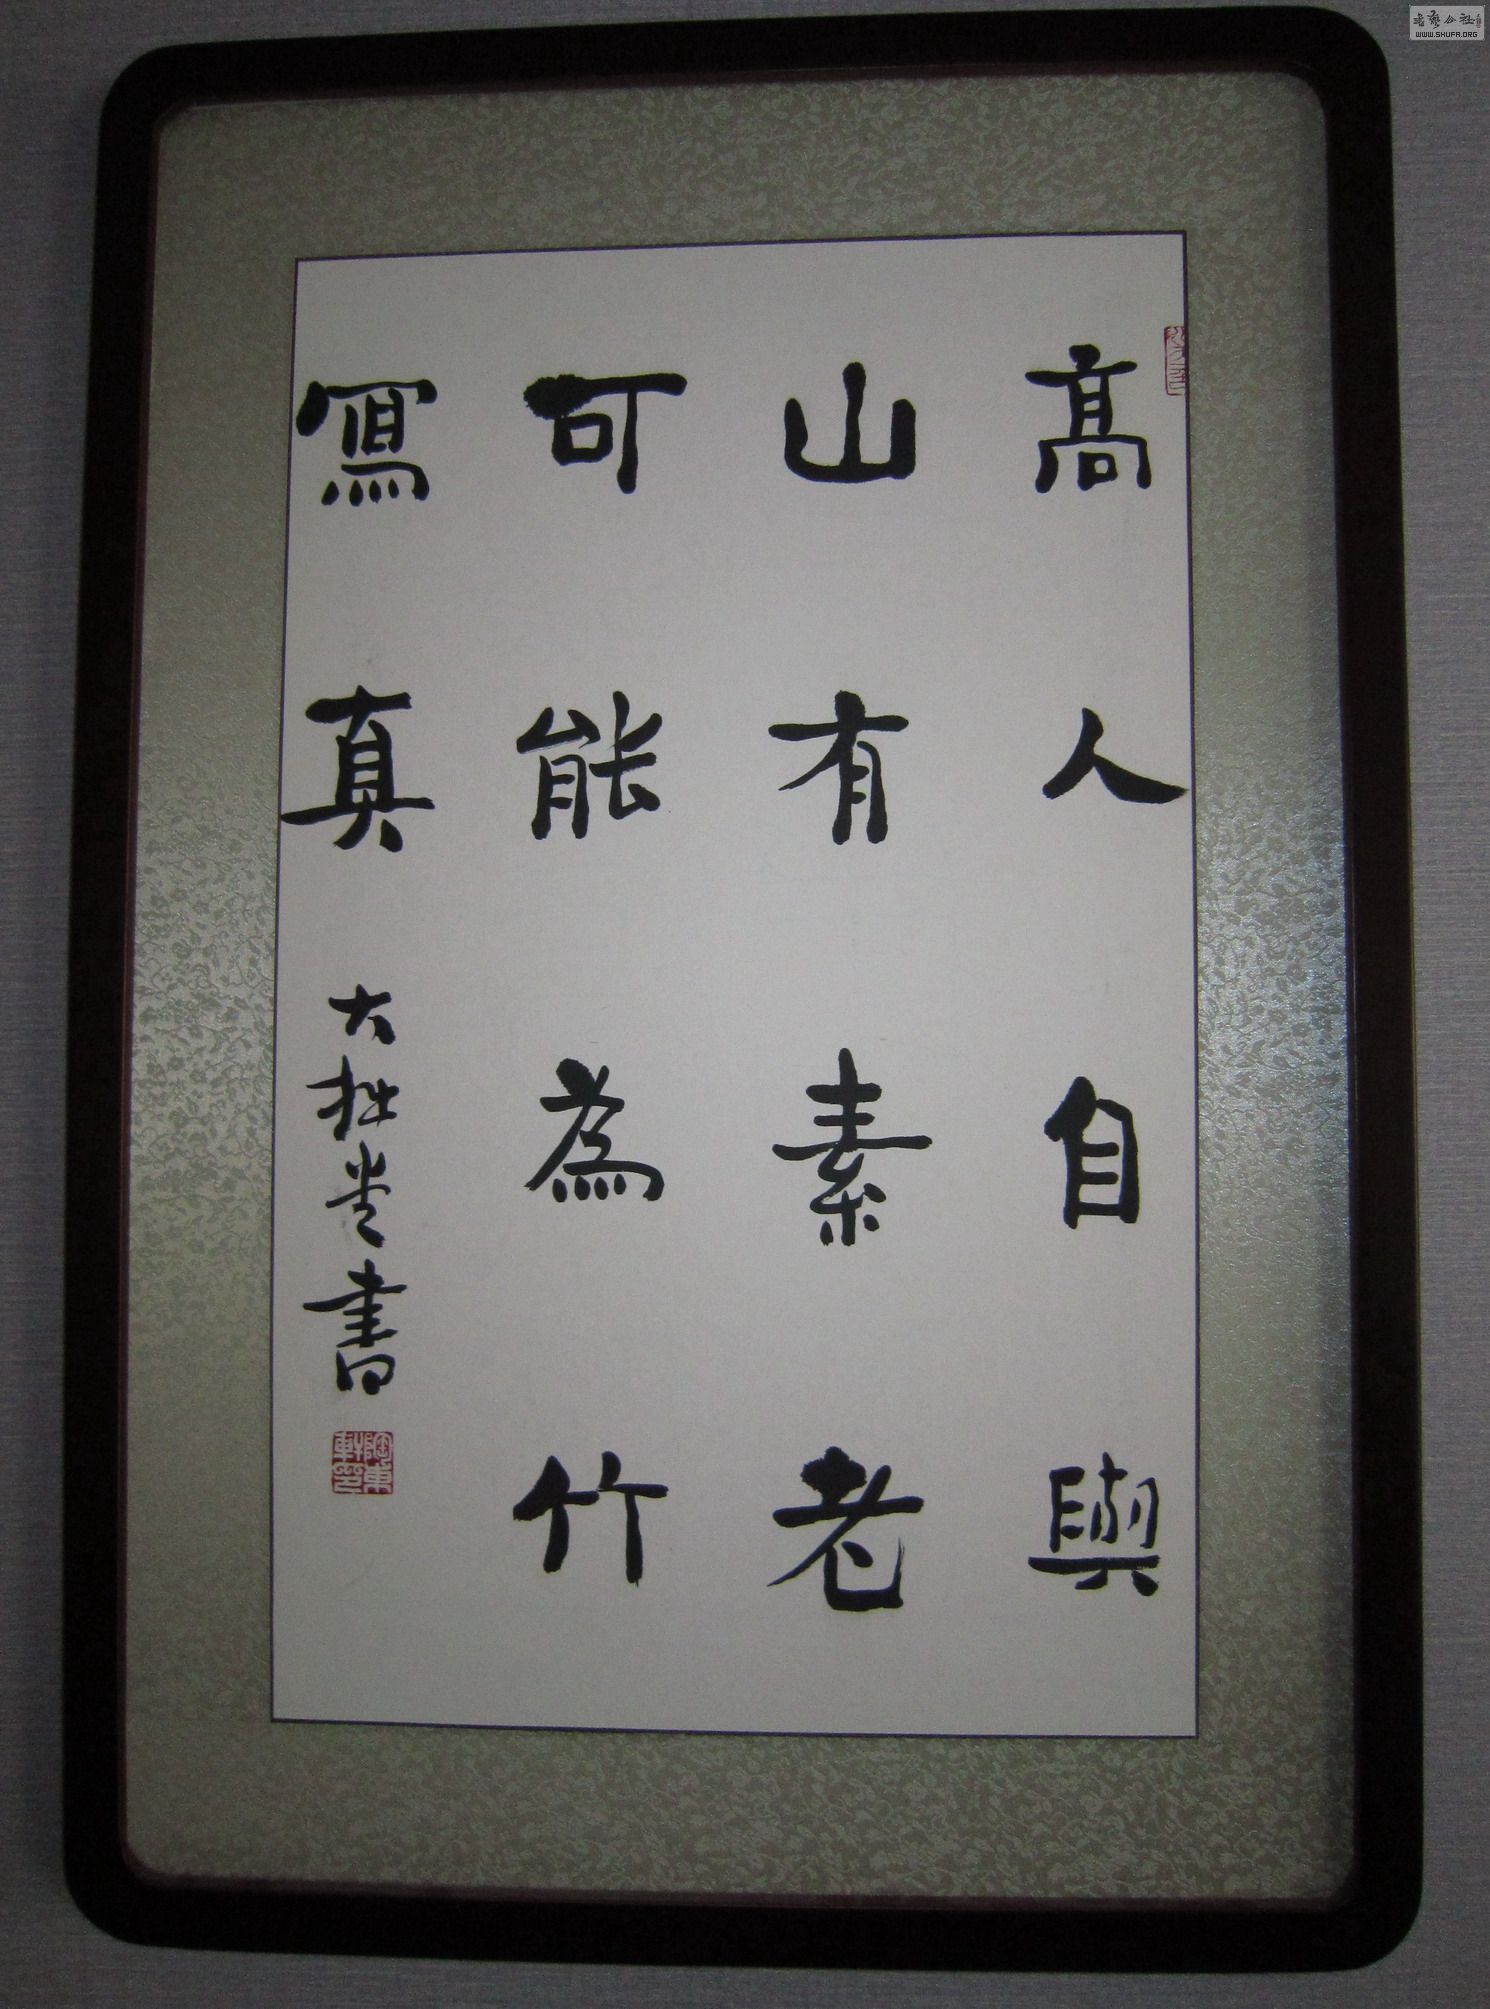 高人自與
山有素老
可能為竹
寫真 大拙堂書
WWW.SHUFA.ORG